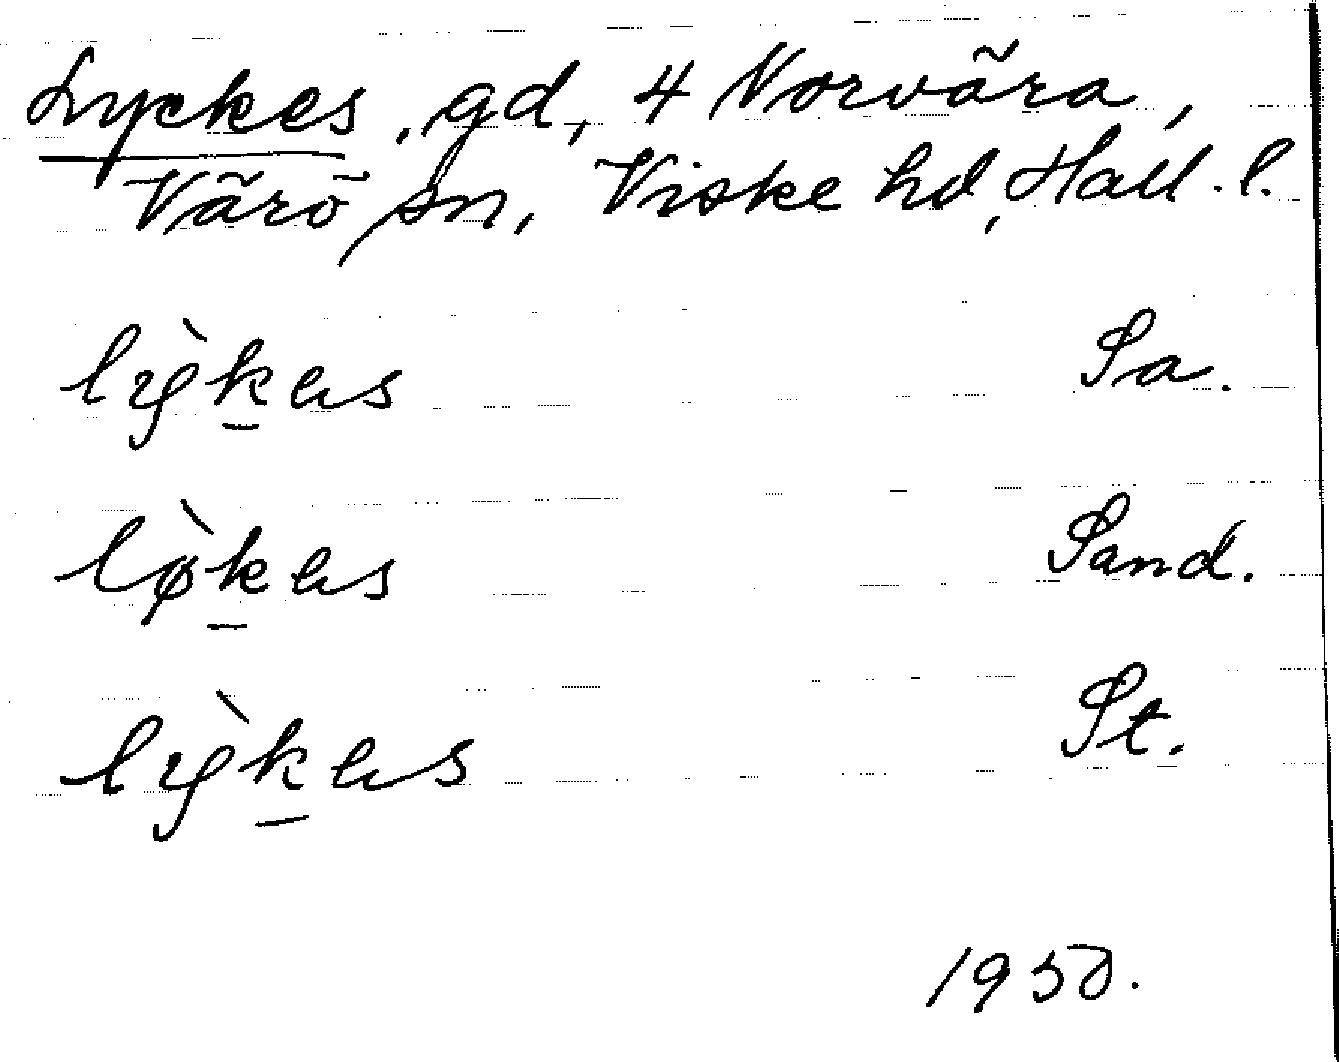 Lyckes, gd, 4 Norvära,
Värö sn, Viske hd, Hall. l.
lỳk̲es Sa.
lø̀k̲es Sand.
lỳk̲es St.
1950.